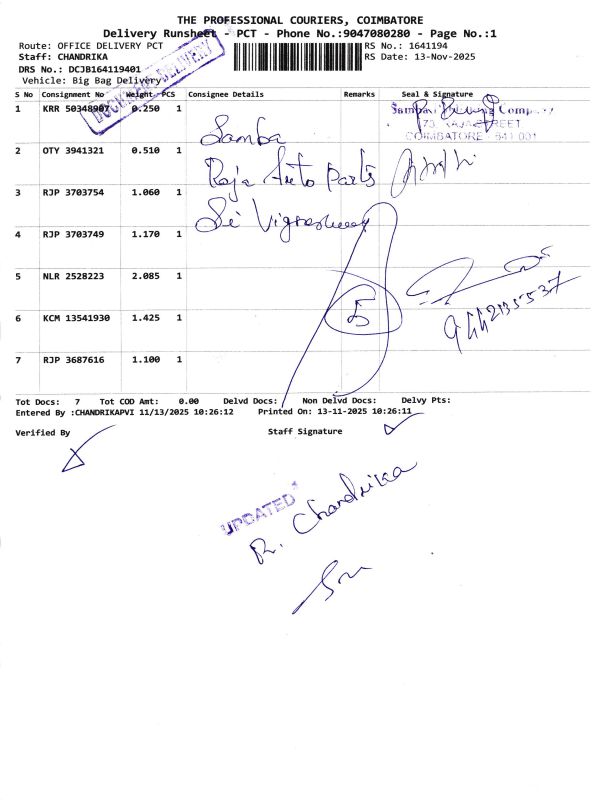 THE PROFESSIONAL COURIERS, COIMBATORE
Delivery Runsheet - PCT - Phone No.:9047080280 - Page No.:1
Route: OFFICE DELIVERY PCT RS No.: 1641194
Staff: CHANDRIKA RS Date: 13-Nov-2025
DRS No.: DCJB164119401
Vehicle: Big Bag Delivery
S No Consignment No Weight PCS Consignee Details Remarks Seal & Signature
1 KRR 50348907 0.250 1 Samba
73, RAJA STREET
COIMBATORE - 641 001
2 OTY 3941321 0.510 1 Raja Auto Parts
3 RJP 3703754 1.060 1 Sri
4 RJP 3703749 1.170 1
5 NLR 2528223 2.085 1
6 KCM 13541930 1.425 1 5
7 RJP 3687616 1.100 1
Tot Docs: 7 Tot COD Amt: 0.00 Delvd Docs: Non Delvd Docs: Delvy Pts:
Entered By :CHANDRIKAPVI 11/13/2025 10:26:12 Printed On: 13-11-2025 10:26:11
Verified By Staff Signature
UPDATED
R. Chandrika